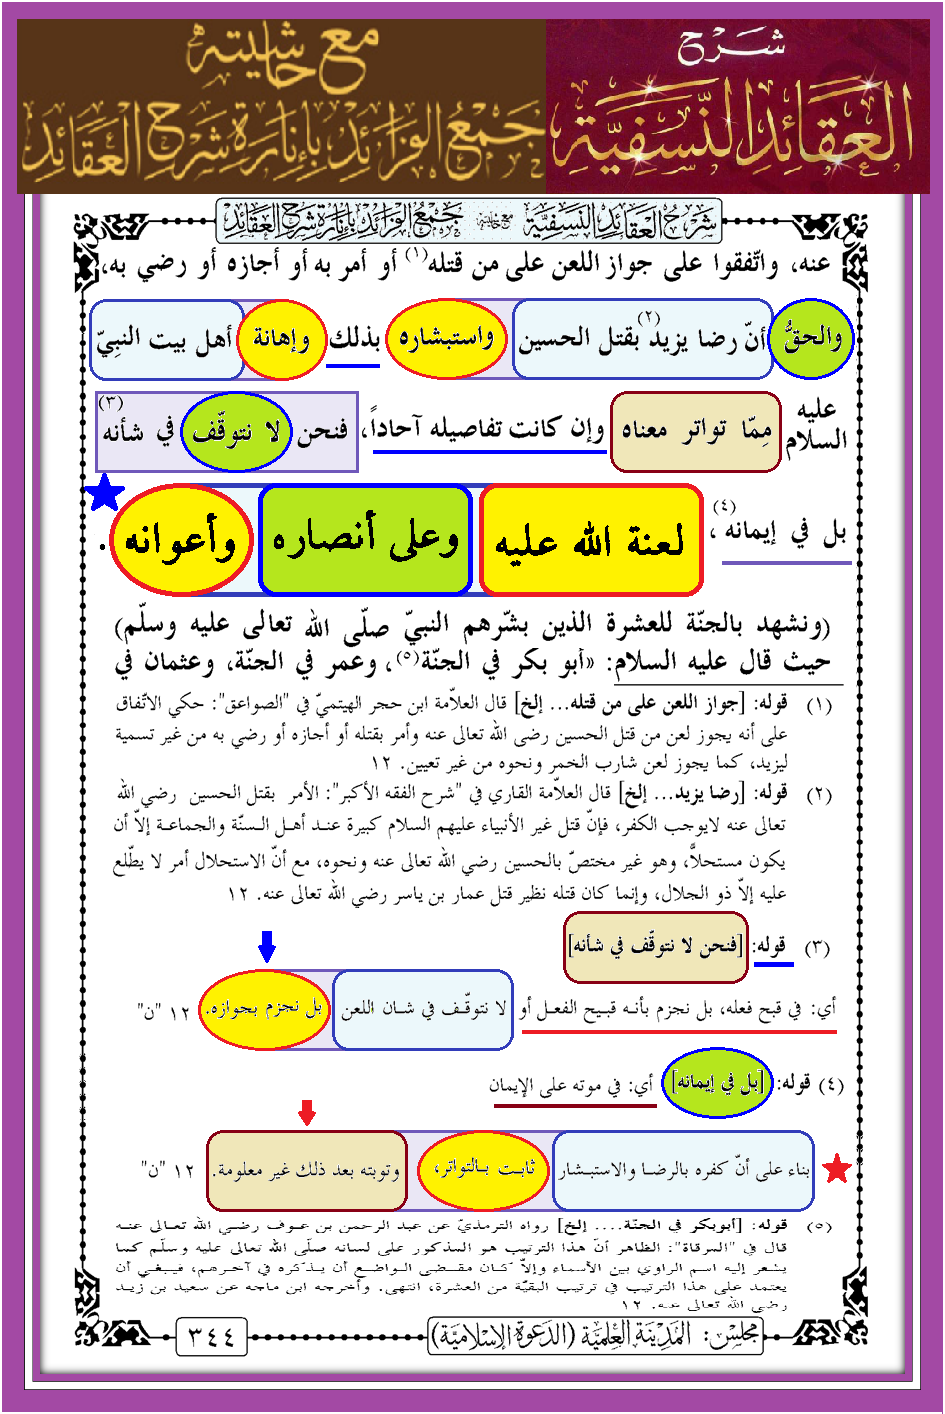 شرح
العقائد النسفية
مع حاشيته
جمع الفرائد بإنارة شرح العقائد
شرح العقائد النسفية مع حاشيته جمع الفرائد بإنارة شرح العقائد
عنه، واتّفقوا على جواز اللعن على من قتله(١) أو أمر به أو أجازه أو رضي به،
والحقُّ أنّ رضا يزيد(٢) بقتل الحسين واستبشاره بذلك وإهانة أهل بيت النبيّ
عليه السلام مِمّا تواتر معناه وإن كانت تفاصيله آحاداً، فنحن لا نتوقّف في شأنه(٣)
بل في إيمانه(٤)، لعنة الله عليه وعلى أنصاره وأعوانه.
(ونشهد بالجنّة للعشرة الذين بشّرهم النبيّ صلّى الله تعالى عليه وسلّم)
حيث قال عليه السلام: «أبو بكر في الجنّة(٥)، وعمر في الجنّة، وعثمان في
(١) قوله: [جواز اللعن على من قتله... إلخ] قال العلاّمة ابن حجر الهيتميّ في "الصواعق": حكي الاتّفاق
على أنه يجوز لعن من قتل الحسين رضى الله تعالى عنه وأمر بقتله أو أجازه أو رضي به من غير تسمية
ليزيد، كما يجوز لعن شارب الخمر ونحوه من غير تعيين. ١٢
(٢) قوله: [رضا يزيد... إلخ] قال العلاّمة القاري في "شرح الفقه الأكبر": الأمر بقتل الحسين رضي الله
تعالى عنه لايوجب الكفر، فإنّ قتل غير الأنبياء عليهم السلام كبيرة عند أهل السنّة والجماعة إلاّ أن
يكون مستحلاًّ، وهو غير مختصّ بالحسين رضي الله تعالى عنه ونحوه، مع أنّ الاستحلال أمر لا يطّلع
عليه إلاّ ذو الجلال، وإنما كان قتله نظير قتل عمار بن ياسر رضي الله تعالى عنه. ١٢
(٣) قوله: [فنحن لا نتوقّف في شأنه]
أي: في قبح فعله، بل نجزم بأنه قبيح الفعل أو لا نتوقّف في شان اللعن بل نجزم بجوازه. ١٢ "ن"
(٤) قوله: [بل في إيمانه] أي: في موته على الإيمان
بناء على أنّ كفره بالرضا والاستبشار ثابت بالتواتر، وتوبته بعد ذلك غير معلومة. ١٢ "ن"
(٥) قوله: [أبوبكر في الجنّة.... إلخ] رواه الترمذيّ عن عبد الرحمن بن عوف رضي الله تعالى عنه
قال في "المرقاة": الظاهر أنّ هذا الترتيب هو المذكور على لسانه صلّى الله تعالى عليه وسلّم كما
يشعر إليه اسم الراوي بين الأسماء وإلاّ كان مقتضى التواضع أن يذكره في آخرهم، فينبغي أن
يعتمد على هذا الترتيب في ترتيب البقيّة من العشرة، انتهى. وأخرجه ابن ماجه عن سعيد بن زيد
رضي الله تعالى عنه. ١٢
مجلس: المدينة العلمية (الدعوة الإسلامية)
٣٤٤